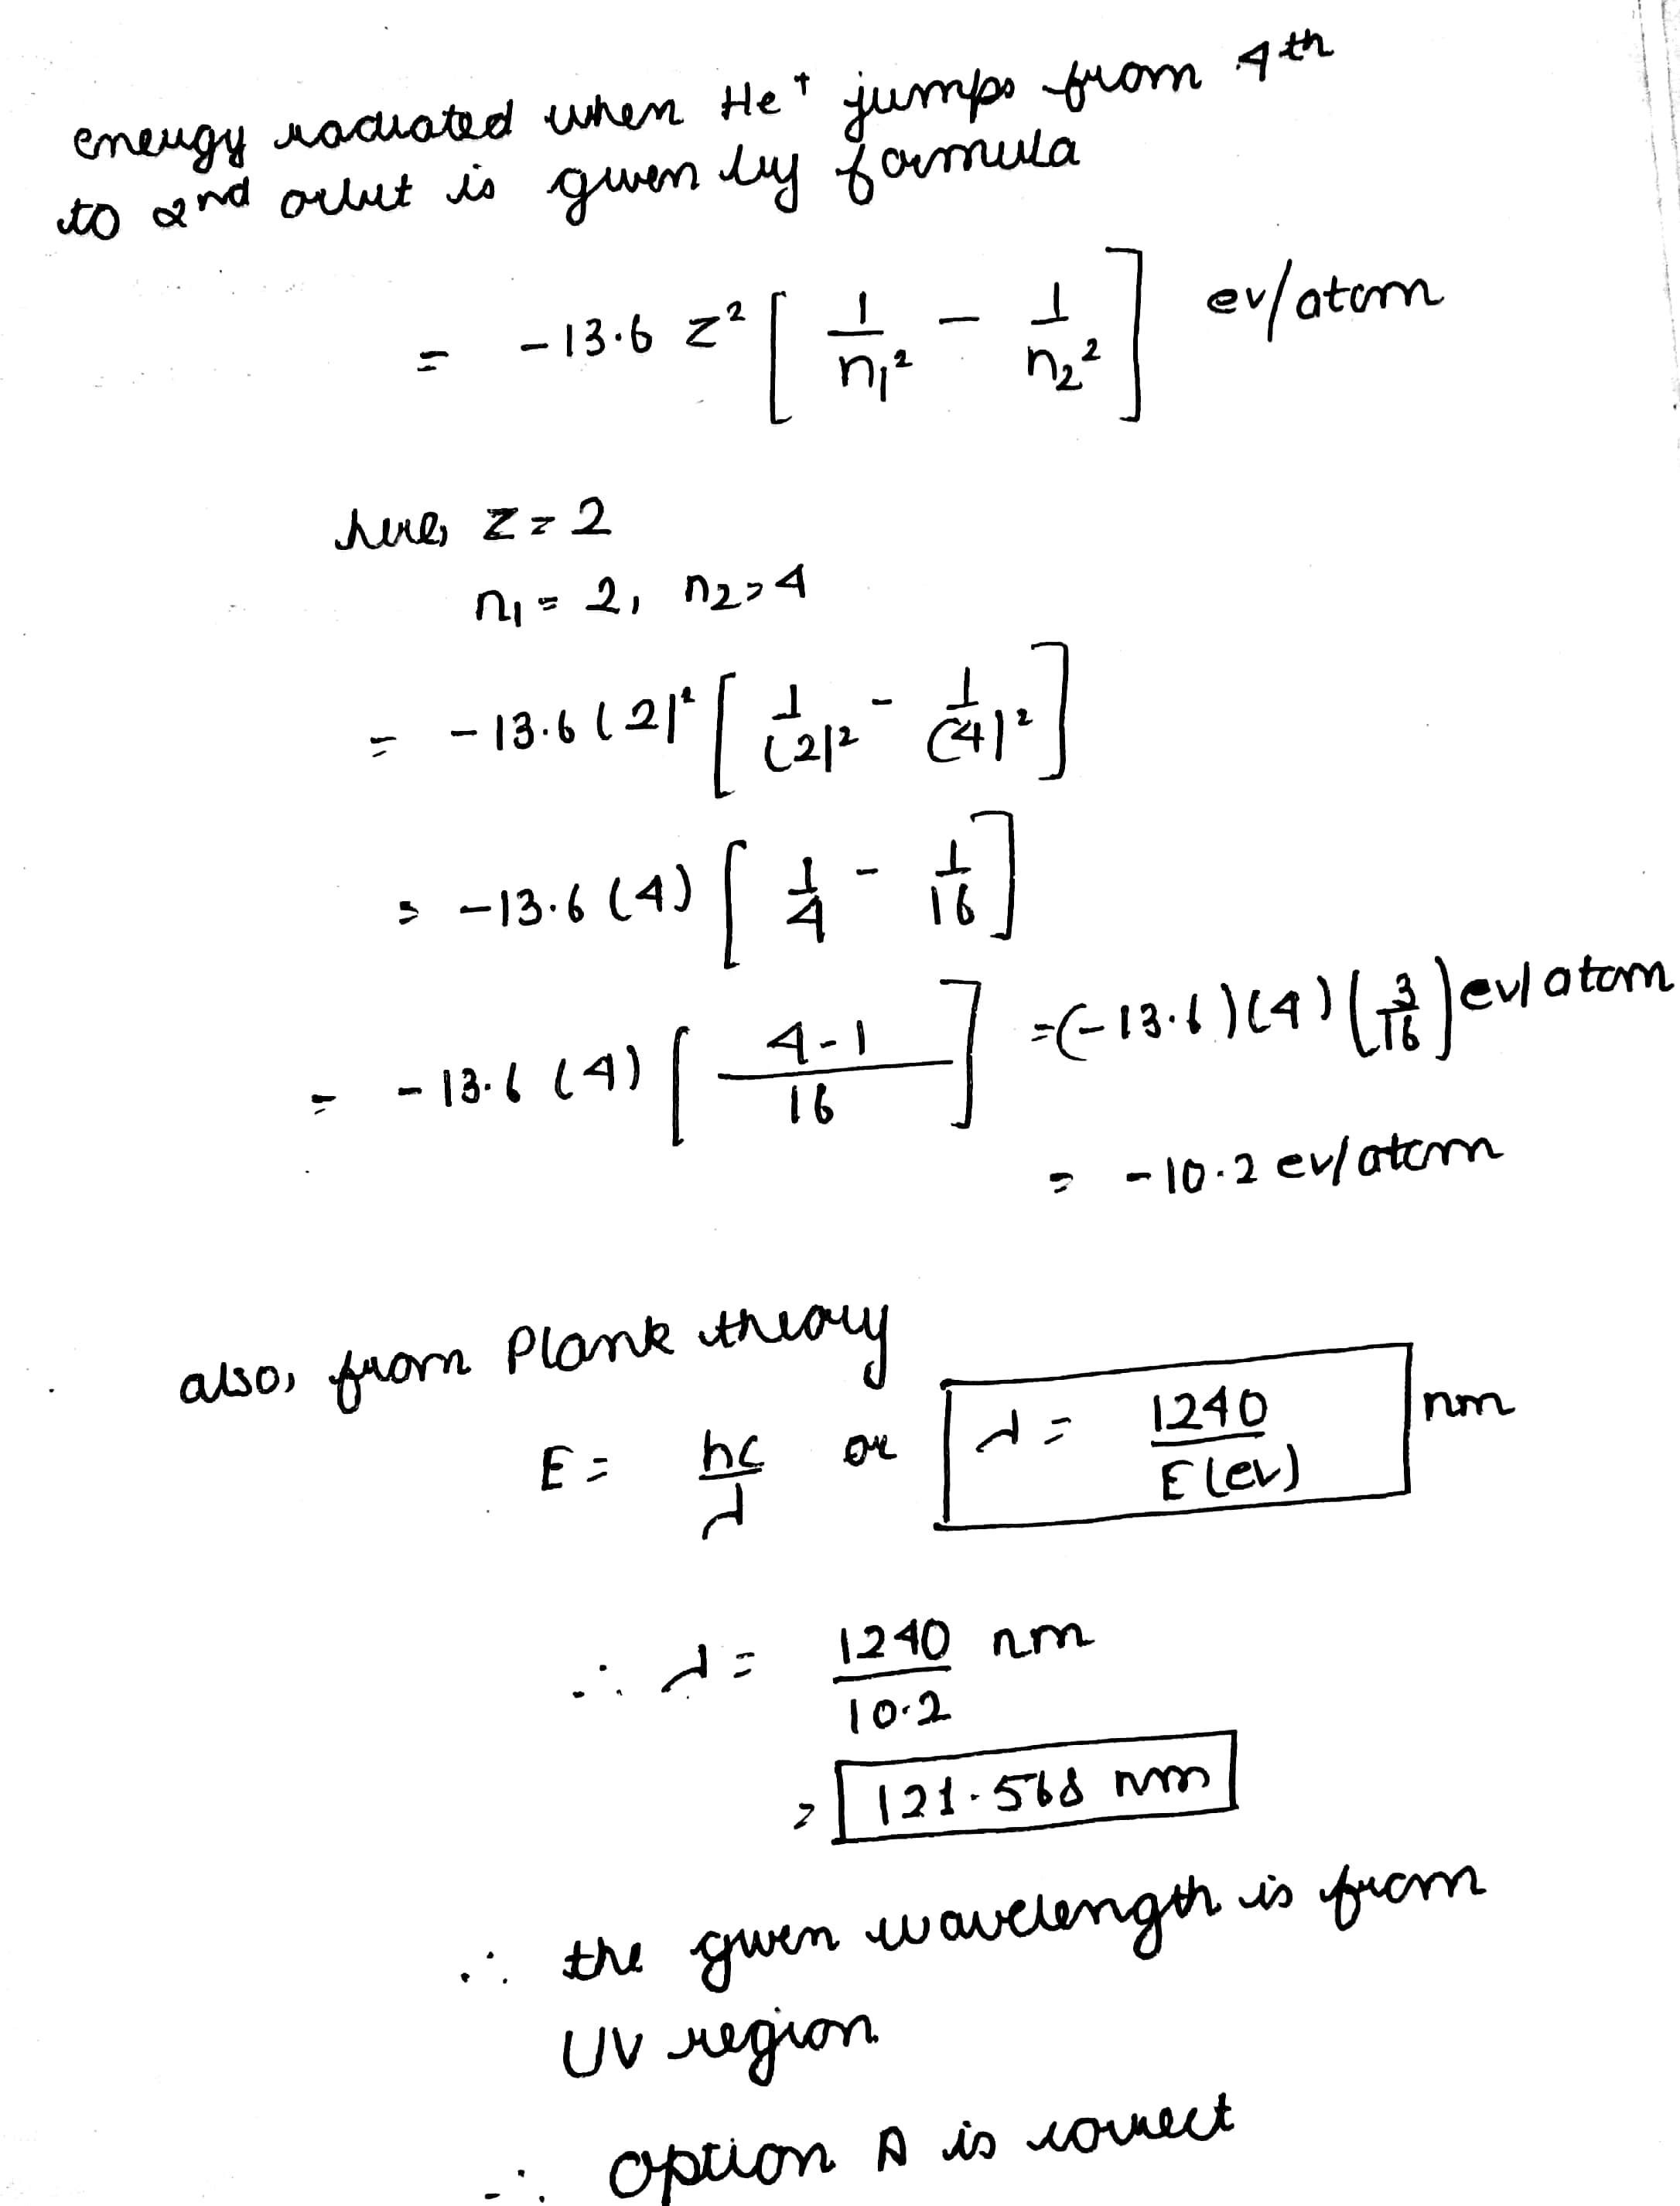 energy radiated when He⁺ jumps from 4th
to 2nd orbit is given by formula
= -13.6 z² [ 1/n₁² - 1/n₂² ] ev/atom
here, z = 2
n₁ = 2, n₂ = 4
= -13.6 (2)² [ 1/(2)² - 1/(4)² ]
= -13.6 (4) [ 1/4 - 1/16 ]
= -13.6 (4) [ 4-1/16 ] = (-13.6)(4)(3/16) ev/atom
= -10.2 ev/atom
also, from Plank theory
E = hc/λ or λ = 1240/E(ev) nm
∴ λ = 1240/10.2 nm
= 121.568 nm
∴ the given wavelength is from
UV region
∴ option A is correct